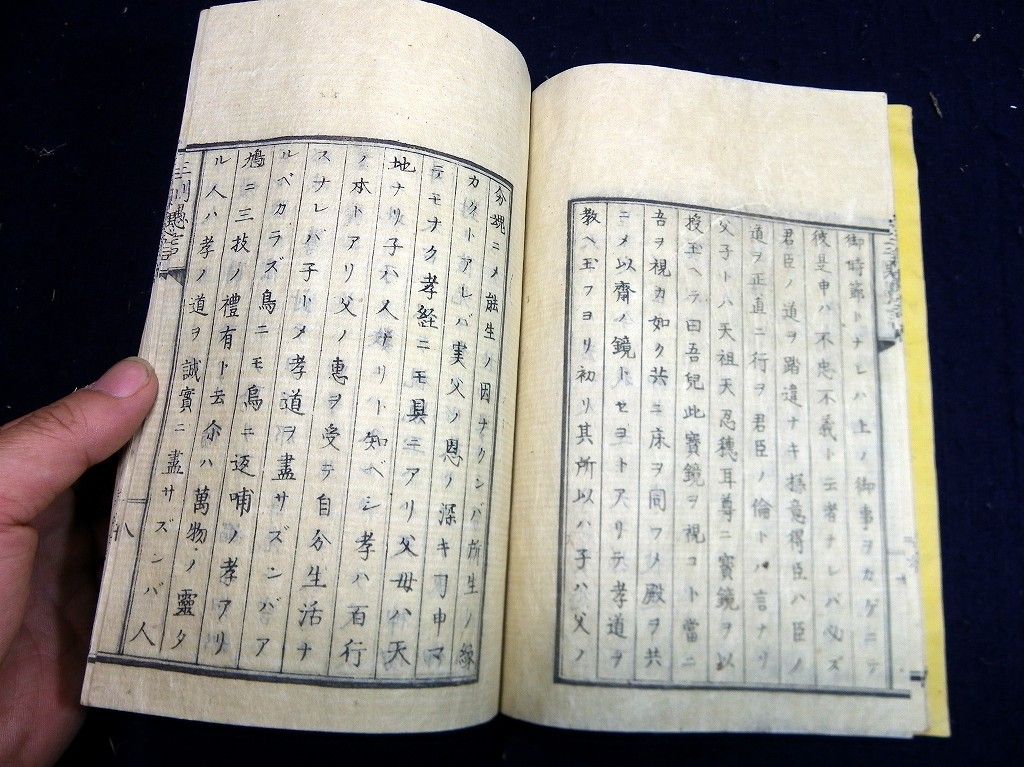 御時節トナレハ上ノ御事ヲカゲニテ
彼是申ハ不忠不義ト云者ナレバ必ズ
君臣ノ道ヲ踏違ナキ様意得臣ハ臣ノ
道ヲ正直ニ行ヲ君臣ノ倫トハ言ナリ
父子トハ天祖天忍穂耳尊ニ寶鏡ヲ以
授玉ヘラ曰吾兒此寶鏡ヲ視コト當ニ
吾ヲ視カ如ク共ニ床ヲ同フメ殿ヲ共
ニメ以齋ノ鏡トセヨトアリテ孝道ヲ
教ヘ玉フヨリ初リ其所以ハ子ハ父ノ
分魂ニメ能生ノ因ナクンバ所生ノ縁
カクトアレバ実父ノ恩ノ深キ申マ
デモナク孝経ニモ具ニアリ父母ハ天
地ナリ子ハ人ナリト知ベシ孝ハ百行
ノ本トアリ父ノ惠ヲ受テ自分生活ナ
スナレバ子トメ孝道ヲ盡サズンバア
ルベカラズ鳥ニモ烏ニ返哺ノ孝アリ
鳩ニ三枝ノ禮有ト云尓ハ萬物ノ靈タ
ル人ハ孝ノ道ヲ誠實ニ盡サズンバ人
八